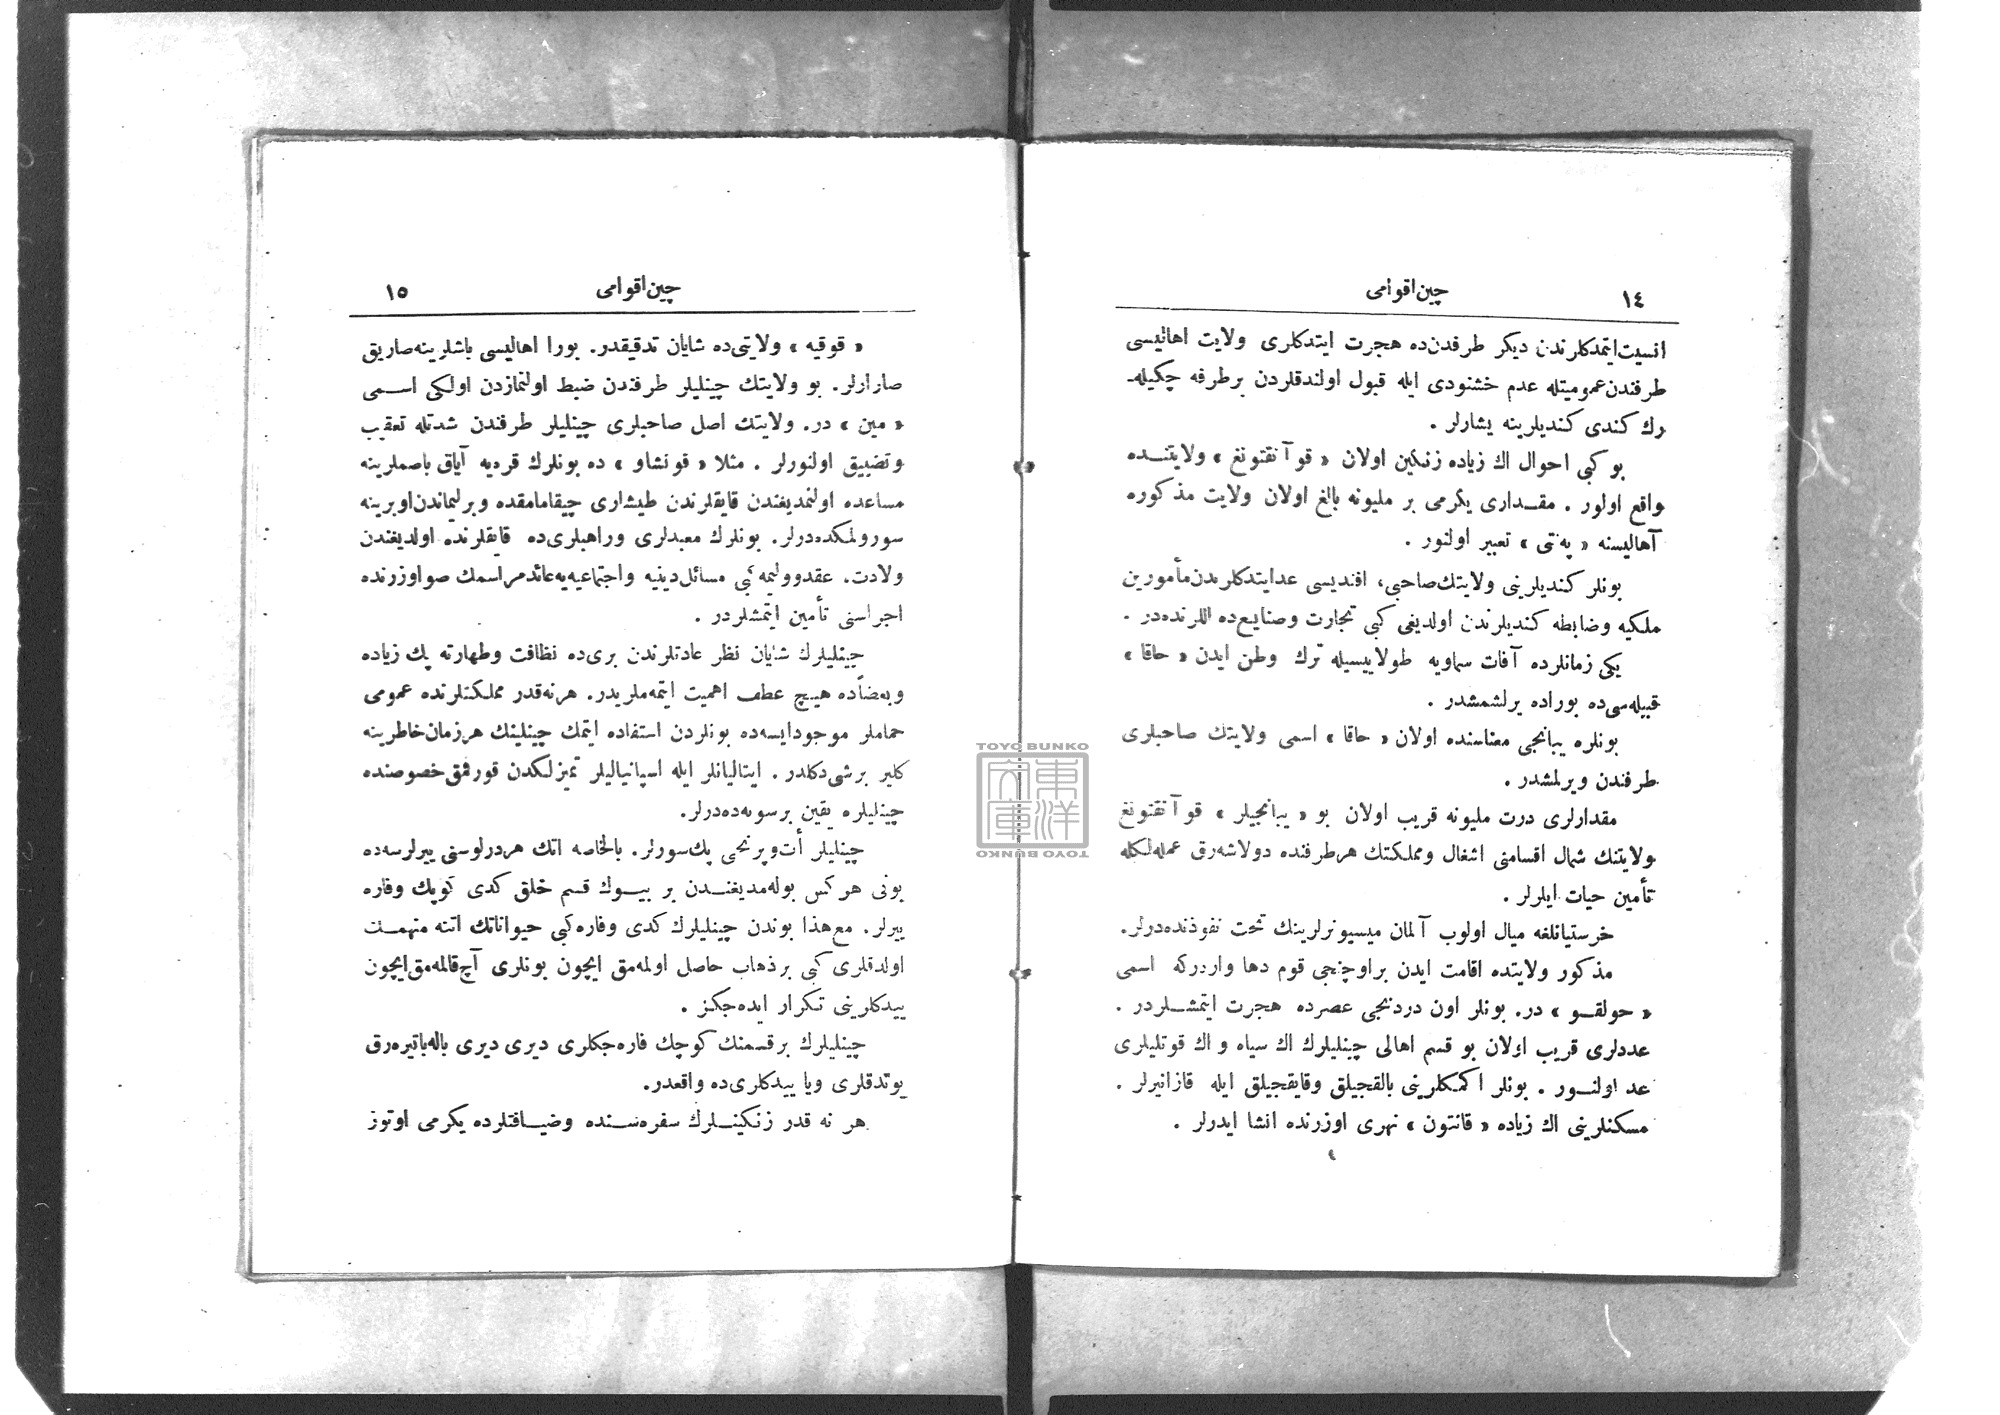 ١٤
چین اقوامی
انسیت ایتمدکلرندن دیکر طرفدن ده هجرت ایتدکلری ولایت اهالیسی
طرفندن عمومیتله عدم خشنودی ایله قبول اولندقلردن برطرفه چکیله‌ـ
رك کندی کندیلرینه یشارلر .
بو کبی احوال اك زیاده زنکین اولان « قوآنقتونغ » ولایتنـده
واقع اولور . مقـداری یکرمی بر ملیونه بالغ اولان ولایت مذکوره
آهالیسنه « په نتی » تعبیر اولنور .
بونلر کندیلرینی ولایتك صاحبی، افندیسی عدایتدکلرندن مأمورین
ملکیه وضابطه کندیلرندن اولدیغی کبی تجارت وصنایع ده اللرنده در .
یکی زمانلرده آفات سماویه طولاییسیله ترك وطن ایدن « حاقا »
قبیله سی ده بوراده یرلشمشدر .
بونلره یبانجی معناسنده اولان « حاقا » اسمی ولایتك صاحبلری
طرفندن ویرلمشدر .
مقدارلری درت ملیونه قریب اولان بو « یبانجیلر » قوآنقتونغ
ولایتنك شمال اقسامنی اشغال ومملکتك هرطرفنده دولاشه رق عمله لکله
تأمین حیات ایلرلر .
خرستیانلغه میال اولوب آلمان میسیونرلرینك تحت نفوذنده درلر.
مذکور ولایتده اقامت ایدن براوچنجی قوم دها واردرکه اسمی
« حولقـو » در. بونلر اون دردنجی عصرده هجرت ایتمشـلردر .
عددلری قریب اولان بو قسم اهالی چینلیلرك اك سیاه و اك قوتلیلری
عد اولنـور . بونلر اکمکلرینی بالقجیلق وقایقجیلق ایله قازانیرلر .
مسکنلرینی اك زیاده « قانتون » نهری اوزرنده انشا ایدرلر .
چین اقوامی
١٥
« قوقیه » ولایتی ده شایان تدقیقدر. بورا اهالیسی باشلرینه صاریق
صارارلر. بو ولایتك چینلیلر طرفندن ضبط اولنمازدن اولکی اسـمی
« مین » در. ولایتك اصل صاحبلری چینلیلر طرفندن شدتله تعقیب
وتضییق اولنورلر . مثلا « قونشاو » ده بونلرك قره‌یه آیاق باصملرینه
مساعده اولنمدیغندن قایقلرندن طیشاری چیقامامقده وبر لیماندن اوبرینه
سورولمکده درلر. بونلرك معبدلری وراهبلری ده قایقلرنده اولدیغندن
ولادت، عقدوولیمه کبی مسائل دینیه واجتماعیه یه عائد مراسمك صو اوزرنده
اجراسنی تأمین ایتمشلردر .
چینلیلرك شایان نظر عادتلرندن بری ده نظافت وطهارته پك زیاده
وبعضاًده هیـچ عطف اهمیت ایتمه ملریدر. هرنه قدر مملکتلرنده عمومی
حماملر موجود ایسه ده بونلردن استفاده ایتمك چینلینك هرزمان خاطرینه
کلیر برشی دکلدر . ایتالیانلر ایله اسپانیالیلر تمیزلکدن قورقمق خصوصنده
چینلیلره یقین برسویه ده درلر.
چینلیلر أت وپرنجی پك سورلر. بالخاصه اتك هردرلوسنی ییرلرسه ده
بونی هرکس بوله مدیغنـدن بر بیـوك قسم خلق کدی کوپك وفاره
ییرلر. مع هذا بوندن چینلیلرك کدی وفاره کبی حیواناتك اتنه منهمـك
اولدقلری کبی برذهاب حاصل اولمه مق ایچون بونلری آچ قالمه مق ایچون
ییدکلرینی تکرار ایده جکز .
چینلیلرك برقسمنك کوچك فاره جکلری دیری دیری باله باتیره رق
یوتدقلری ویا ییدکلری ده واقعدر.
هر نه قدر زنکینـلرك سفره سـنده وضیـافتلرده یکرمی اوتوز
TOYO BUNKO
東洋文庫
TOYO BUNKO